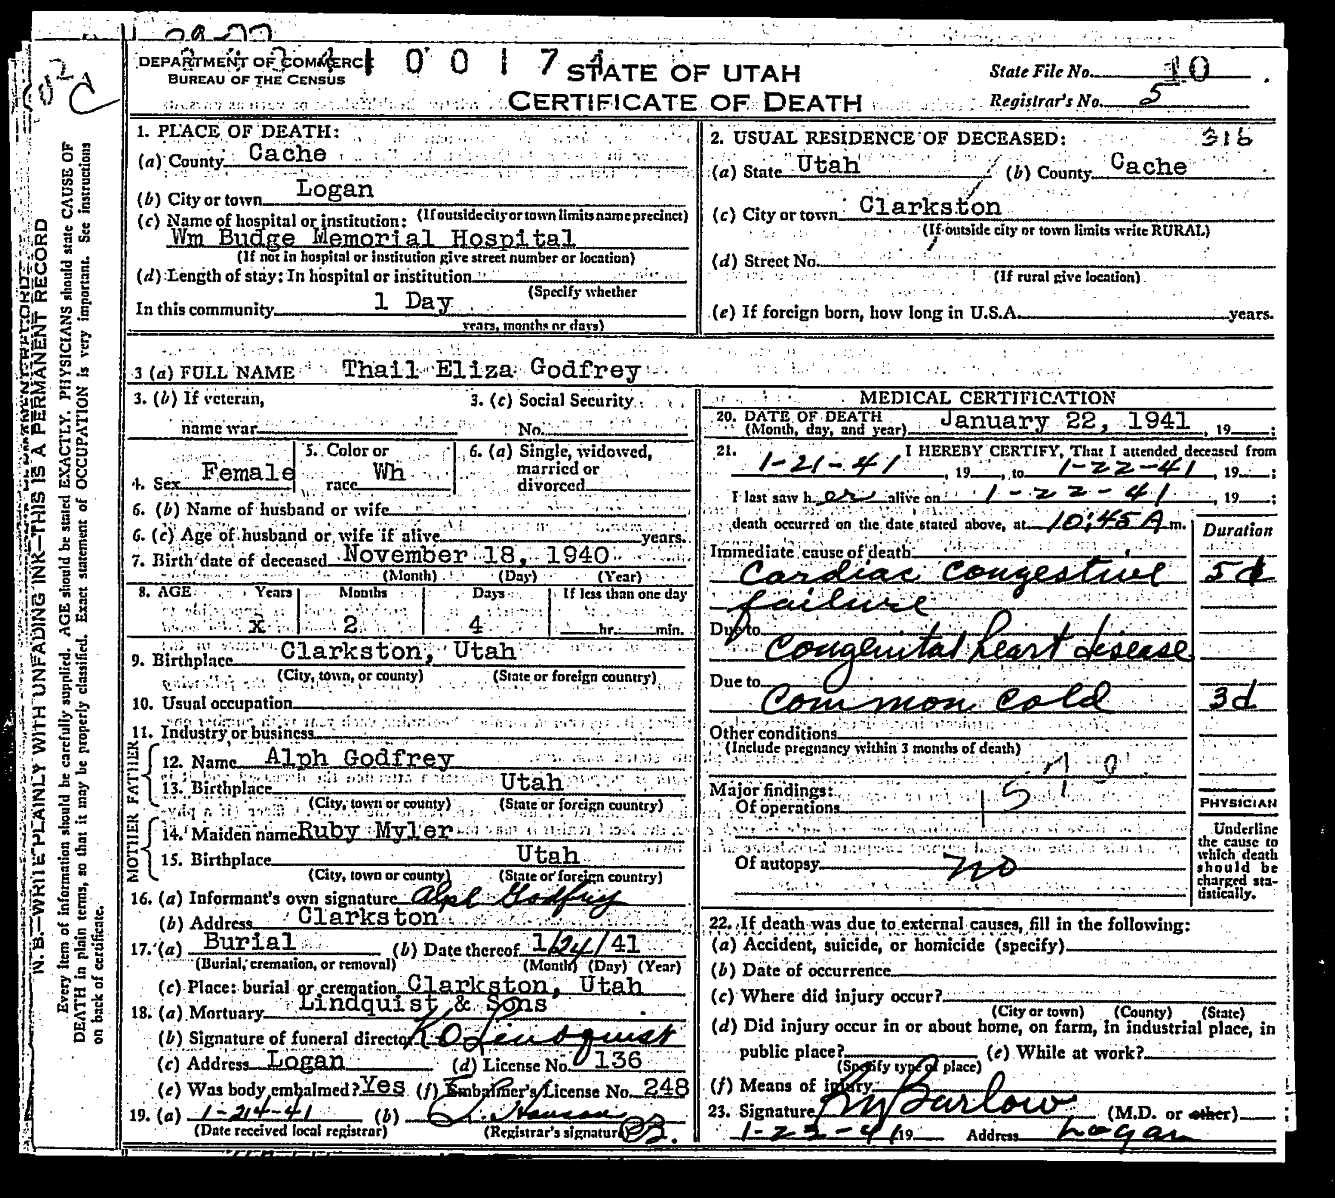 DEPARTMENT OF COMMERCE
BUREAU OF THE CENSUS
STATE OF UTAH
CERTIFICATE OF DEATH
State File No. 10
Registrar's No. 5
N. B.—WRITE PLAINLY WITH UNFADING INK—THIS IS A PERMANENT RECORD
Every item of information should be carefully supplied. AGE should be stated EXACTLY. PHYSICIANS should state CAUSE OF
DEATH in plain terms, so that it may be properly classified. Exact statement of OCCUPATION is very important. See instructions
on back of certificate.
1. PLACE OF DEATH:
(a) County Cache
(b) City or town Logan
(If outside city or town limits name precinct)
(c) Name of hospital or institution:
Wm Budge Memorial Hospital
(If not in hospital or institution give street number or location)
(d) Length of stay: In hospital or institution
(Specify whether
In this community 1 Day
years, months or days)
2. USUAL RESIDENCE OF DECEASED: 316
(a) State Utah (b) County Cache
(c) City or town Clarkston
(If outside city or town limits write RURAL)
(d) Street No.
(If rural give location)
(e) If foreign born, how long in U.S.A. years.
3 (a) FULL NAME Thail Eliza Godfrey
3. (b) If veteran,
name war
3. (c) Social Security
No.
4. Sex Female
5. Color or
race Wh
6. (a) Single, widowed,
married or
divorced
6. (b) Name of husband or wife
6. (c) Age of husband or wife if alive years.
7. Birth date of deceased November 18, 1940
(Month) (Day) (Year)
8. AGE Years Months Days If less than one day
x 2 4 hr. min.
9. Birthplace Clarkston, Utah
(City, town, or county) (State or foreign country)
10. Usual occupation
11. Industry or business
FATHER
12. Name Alph Godfrey
13. Birthplace Utah
(City, town or county) (State or foreign country)
MOTHER
14. Maiden name Ruby Myler
15. Birthplace Utah
(City, town or county) (State or foreign country)
16. (a) Informant's own signature Alph Godfrey
(b) Address Clarkston
17. (a) Burial (b) Date thereof 1/24/41
(Burial, cremation, or removal) (Month) (Day) (Year)
(c) Place: burial or cremation Clarkston, Utah
18. (a) Mortuary Lindquist & Sons
(b) Signature of funeral director Lindquist
(c) Address Logan (d) License No. 136
(e) Was body embalmed? Yes (f) Embalmer's License No. 248
19. (a) 1-24-41 (b)
(Date received local registrar) (Registrar's signature)
MEDICAL CERTIFICATION
20. DATE OF DEATH
(Month, day, and year) January 22, 1941, 19 ;
21. I HEREBY CERTIFY, That I attended deceased from
1-21-41, 19 , to 1-22-41, 19 ;
I last saw her alive on 1-22-41, 19 ;
death occurred on the date stated above, at 10:45 A m.
Duration
Immediate cause of death
Cardiac congestive 5d
failure
Due to
Congenital heart disease
Due to
Common cold 3d
Other conditions
(Include pregnancy within 3 months of death)
Major findings:
Of operations
Of autopsy no
PHYSICIAN
Underline
the cause to
which death
should be
charged sta-
tistically.
22. If death was due to external causes, fill in the following:
(a) Accident, suicide, or homicide (specify)
(b) Date of occurrence
(c) Where did injury occur?
(City or town) (County) (State)
(d) Did injury occur in or about home, on farm, in industrial place, in
public place? (e) While at work?
(Specify type of place)
(f) Means of injury
23. Signature Barlow (M.D. or other)
1-23-41 19 Address Logan